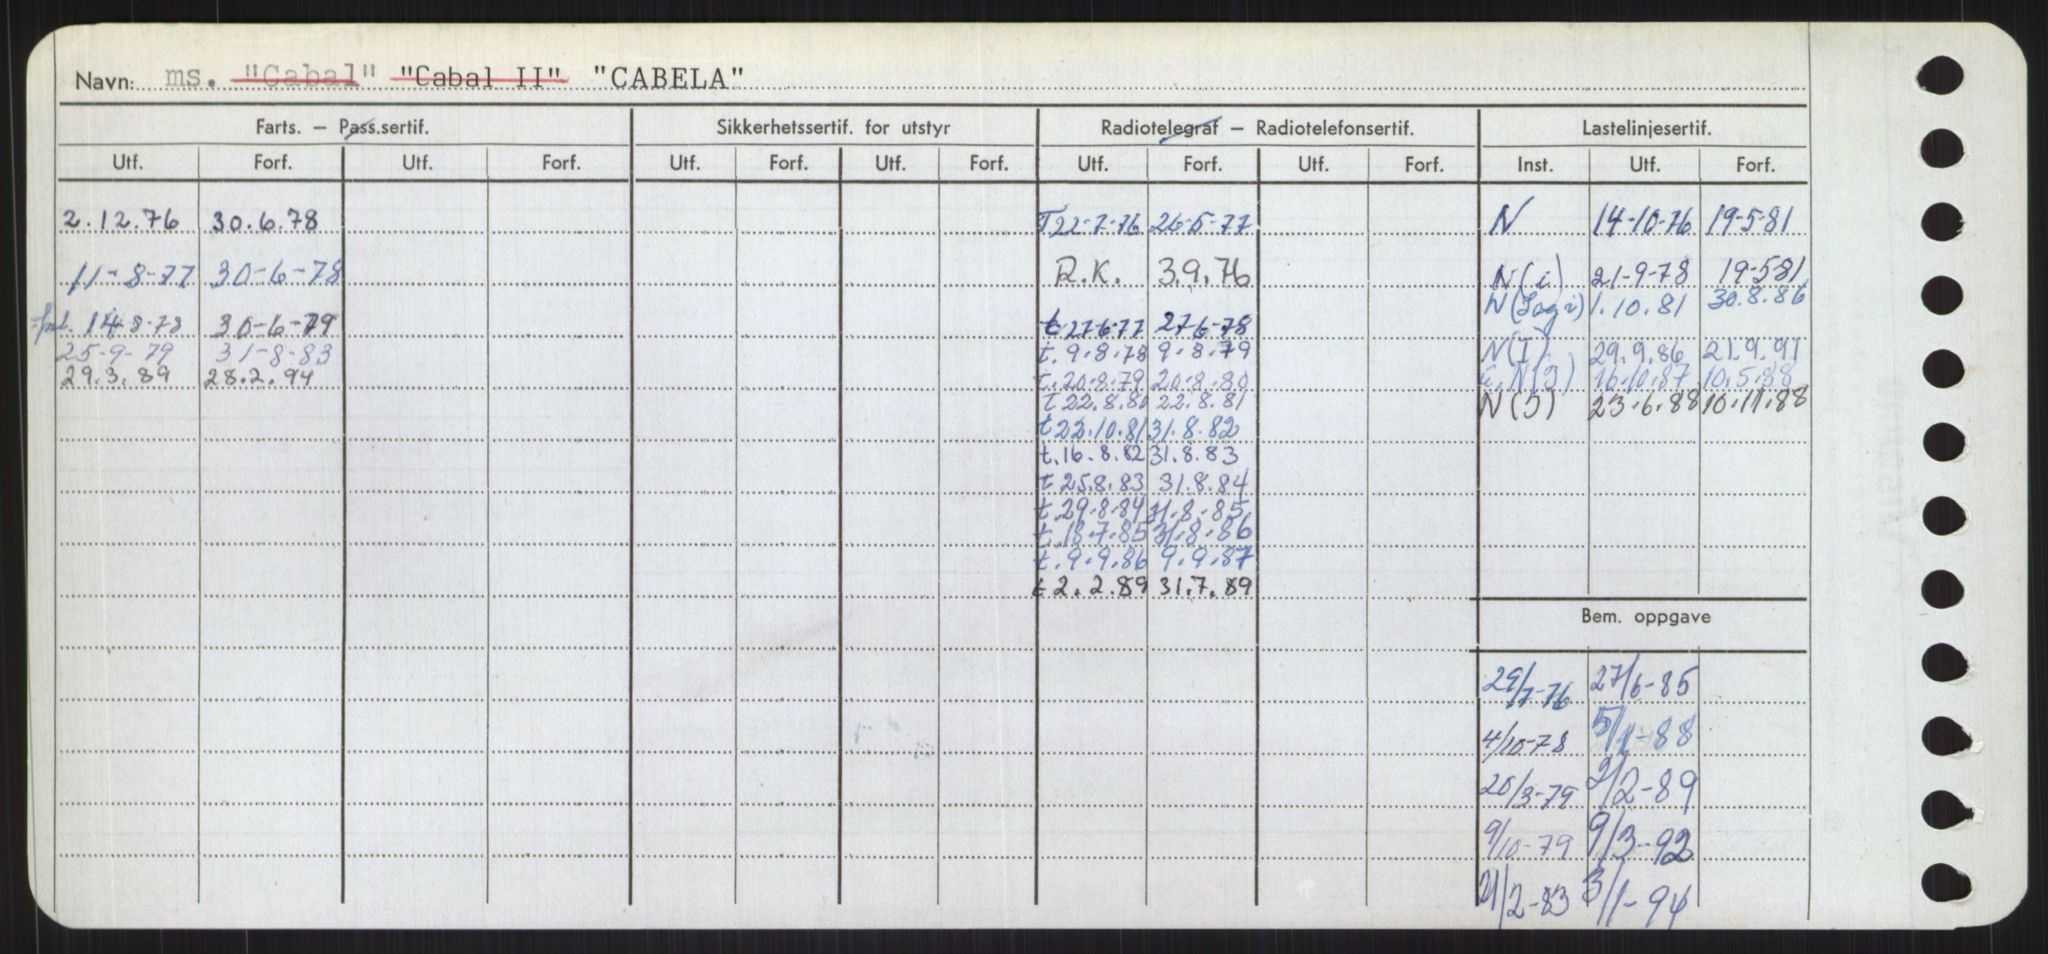 Navn: ms. "Cabal" "Cabal II" "CABELA"
Farts. – Pass.sertif. Sikkerhetssertif. for utstyr Radiotelegraf – Radiotelefonsertif. Lastelinjesertif.
Utf. Forf. Utf. Forf. Utf. Forf. Utf. Forf. Utf. Forf. Utf. Forf. Inst. Utf. Forf.
2.12.76 30.6.78 T 22-7-76 26-5-77 N 14-10-76 19-5-81
11-8-77 30-6-78 R.K. 3.9.76 N(i) 21-9-78 19-5-81
N( ) 1.10.81 30.8.86
14-8-78 30-6-79 t 27-6-77 27-6-78
25-9-79 31-8-83 t. 9.8.78 9.8.79 N(I) 29.9.86 21.9.91
29.3.89 28.2.94 t. 20.8.79 20.8.80 N(I) 16.10.87 10.5.88
T 22.8.80 22.8.81 N(I) 23.6.88 10.11.88
t 22.10.81 31.8.82
t. 16.8.82 31.8.83
t 25.8.83 31.8.84
t 29.8.84 31.8.85
t. 18.7.85 31.8.86
t. 9.9.86 9.9.87
t 2.2.89 31.7.89
Bem. oppgave
29/7-76 27/6-85
4/10-78 5/1-88
20/3-79 2/2-89
9/10-79 9/3-92
21/2-83 3/1-94